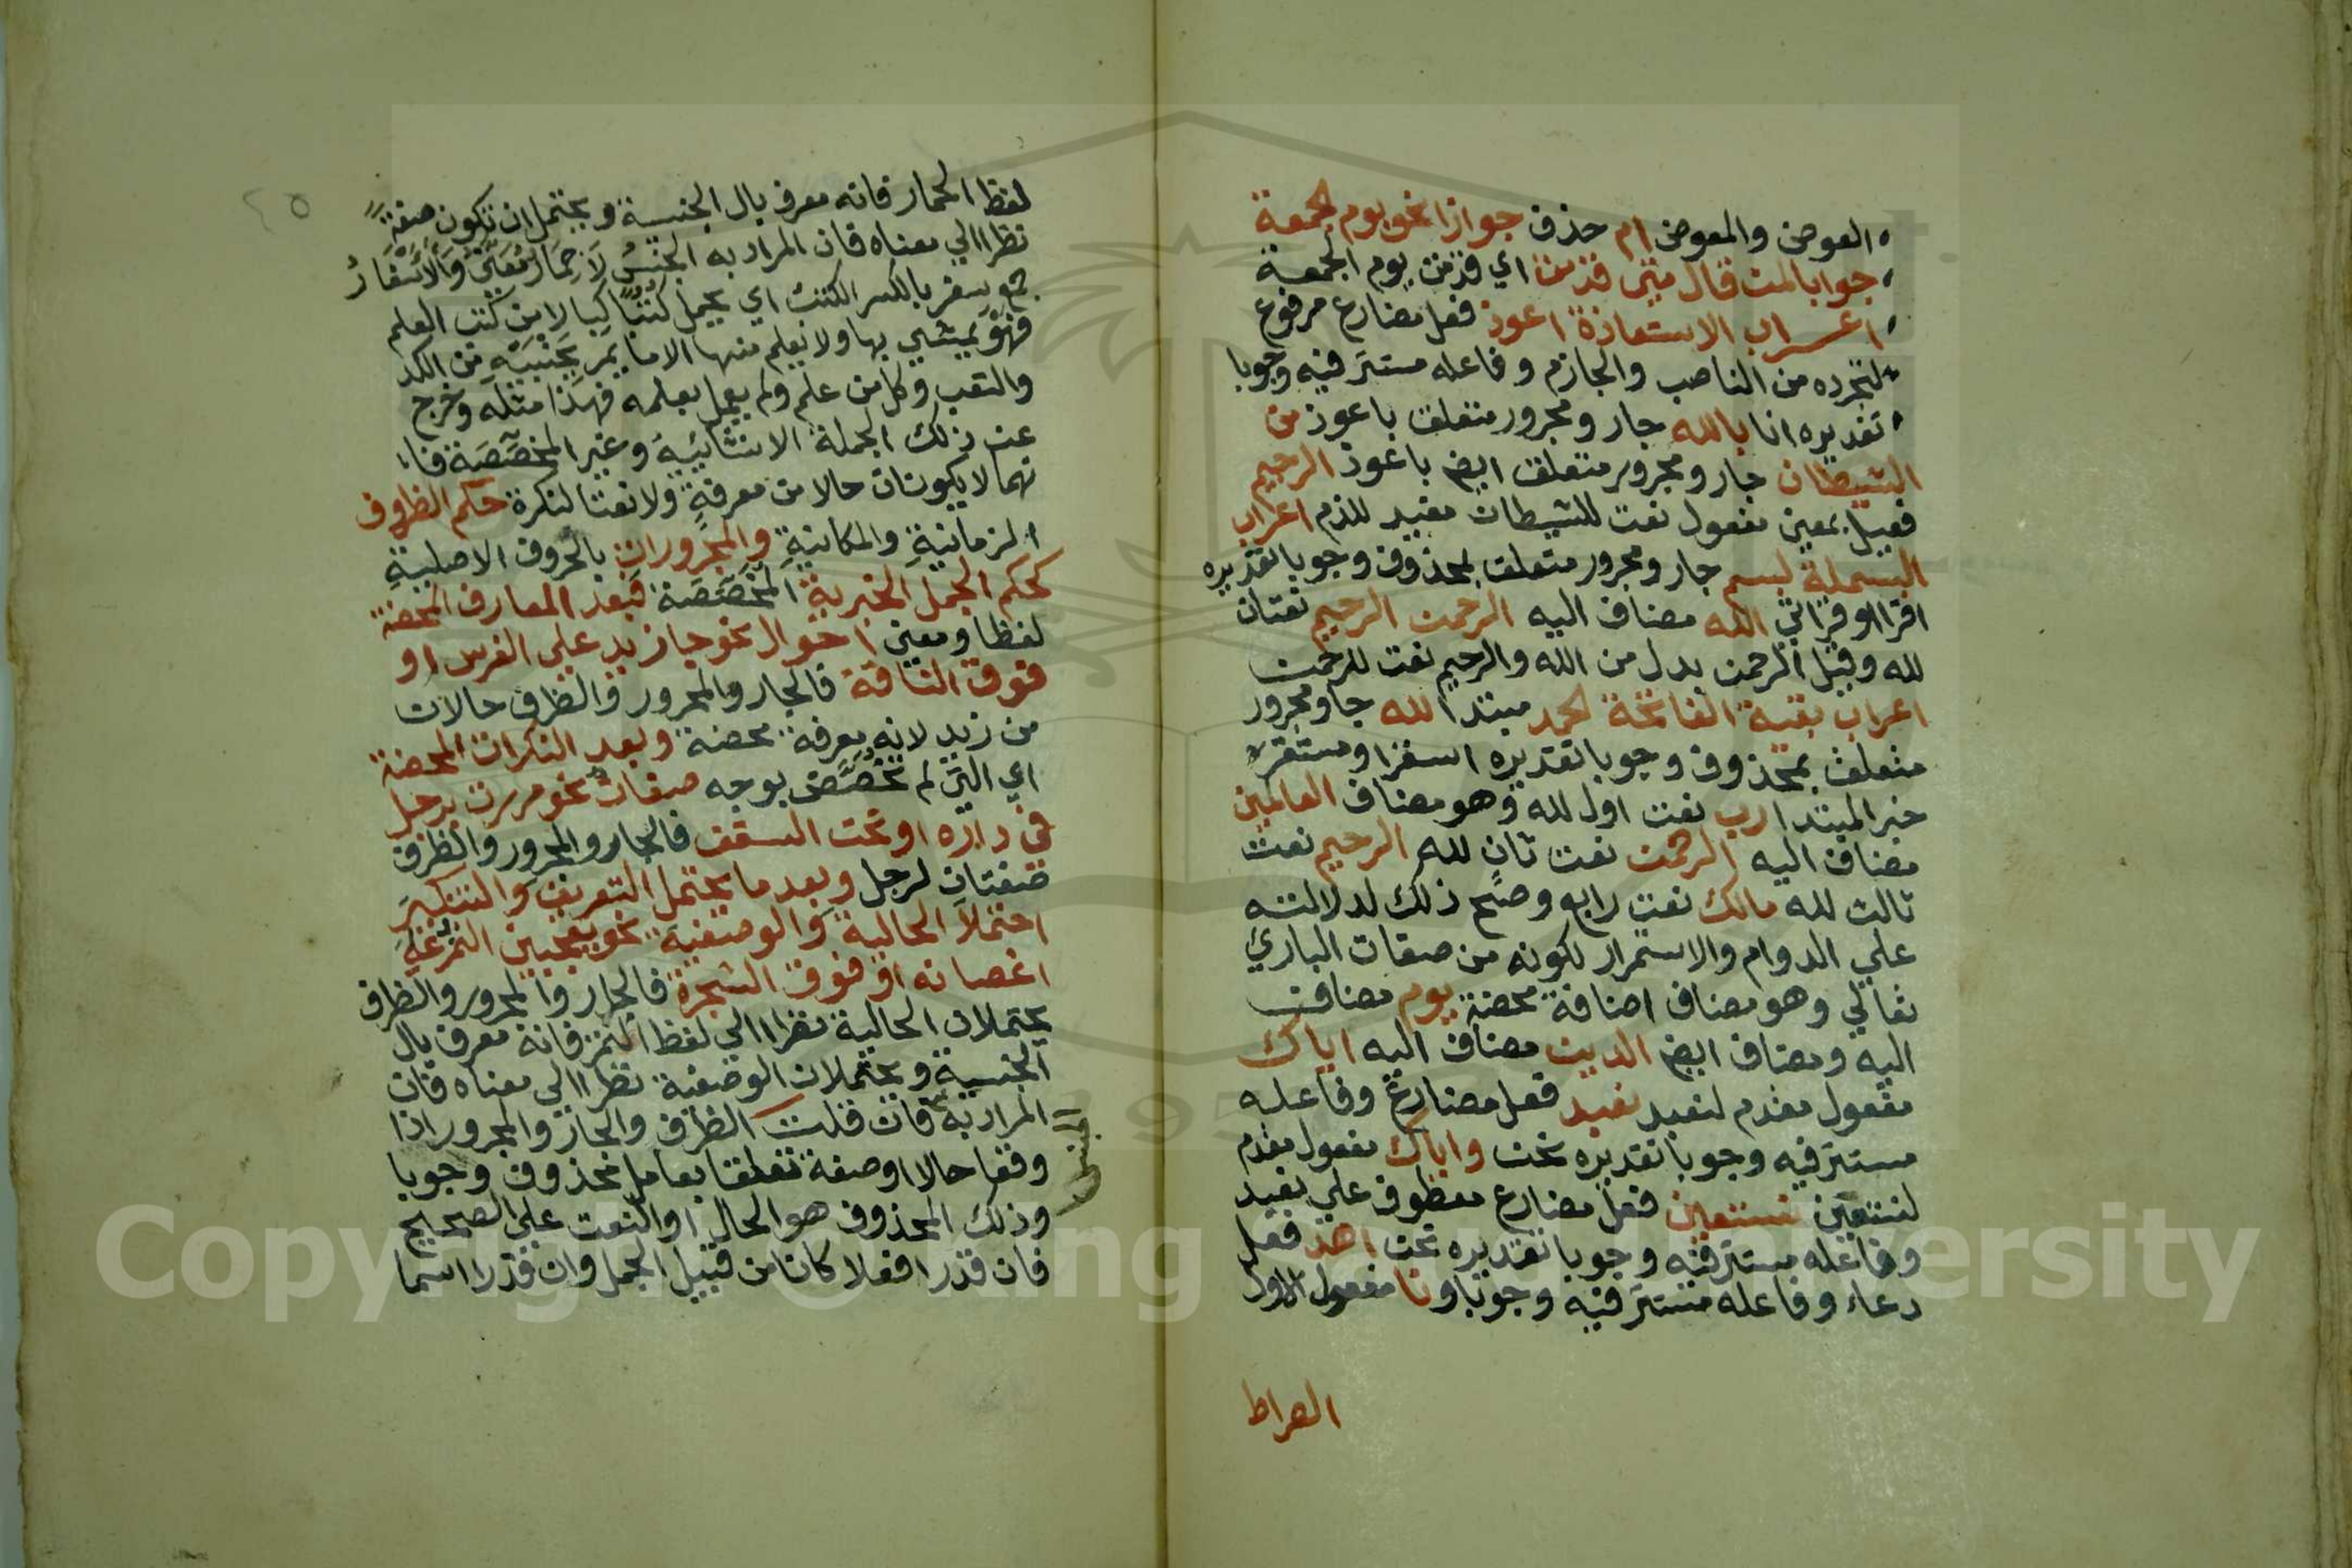 العوض والمعوض ام حذف جوازا نحو يوم الجمعة
جوابا لمن قال متى قدمت اي قدمت يوم الجمعة
اعراب الاستعاذة اعوذ فعل مضارع مرفوع
لتجرده من الناصب والجازم وفاعله مستتر فيه وجوبا
تقديره انا بالله جار ومجرور متعلق باعوذ من
الشيطان جار ومجرور متعلق ايض باعوذ الرجيم
فعيل بمعني مفعول نعت للشيطان مفيد للذم اعراب
البسملة بسم جار ومجرور متعلق بمحذوف وجوبا تقديره
اقرا او قراتي الله مضاف اليه الرحمن الرحيم نعتان
لله وقيل الرحمن بدل من الله والرحيم نعت للرحمن
اعراب بقية الفاتحة الحمد مبتدا لله جار ومجرور
متعلق بمحذوف وجوبا تقديره استقرا ومستقر
خبر المبتدا رب نعت اول لله وهو مضاف العالمين
مضاف اليه الرحمن نعت ثان لله الرحيم نعت
ثالث لله مالك نعت رابع وصح ذلك لدلالته
علي الدوام والاستمرار لكونه من صفات الباري
تعالي وهو مضاف اضافة محضة يوم مضاف
اليه ومضاف ايض الدين مضاف اليه اياك
مفعول مقدم لنعبد نعبد فعل مضارع وفاعله
مستتر فيه وجوبا تقديره نحن واياك مفعول مقدم
لنستعين نستعين فعل مضارع معطوف علي نعبد
وفاعله مستتر فيه وجوبا تقديره نحن اهد فعل
دعاء وفاعله مستتر فيه وجوبا ونا مفعول الاول
الصراط
٢٥
لفظ الحمار فانه معرف بال الجنسية ويحتمل ان تكون صفة
نظرا الي معناه فان المراد به الجنس لا حمار معين والاسفار
جمع سفر بالكسر الكتب اي يحمل كتبا كبارا من كتب العلم
فهو يمشي بها ولا يعلم منها الا ما يمر بجنبيه من الكد
والتعب وكل من علم ولم يعمل بعلمه فهذا مثله وخرج
عن ذلك الجملة الانشائية وغير المخصصة فا
نهما لا يكونان حالا من معرفة ولا نعتا لنكرة حكم الظروف
الزمانية والمكانية والمجرورات بالحروف الاصلية
كحكم الجمل الخبرية المخصصة فبعد المعارف المحضة
لفظا ومعني احوال نحو جاز يد علي الفرس او
فوق الناقة فالجار والمجرور والظرف حالان
من زيد لانه معرفة محضة وبعد النكرات المحضة
اي التي لم تخصص بوجه صفات نحو مررت برجل
في داره او تحت السقف فالجار والمجرور والظرف
صفتان لرجل وبعد ما يحتمل التعريف والتنكير
احتملا الحالية والوصفية نحو يعجبني الثمر علي
اغصانه او فوق الشجرة فالجار والمجرور والظرف
يحتملان الحالية نظرا الي لفظ الثمر فانه معرف بال
الجنسية ويحتملان الوصفية نظرا الي معناه فان
المراد به فان قلت الظرف والجار والمجرور اذا
الجنس
وقعا حالا او صفة تعلقا بعامل محذوف وجوبا
وذلك المحذوف هو الحال او النعت علي الصحيح
فان قدرا فعلا كانا من قبيل الجمل وان قدرا اسما
Copyright © King Saud University